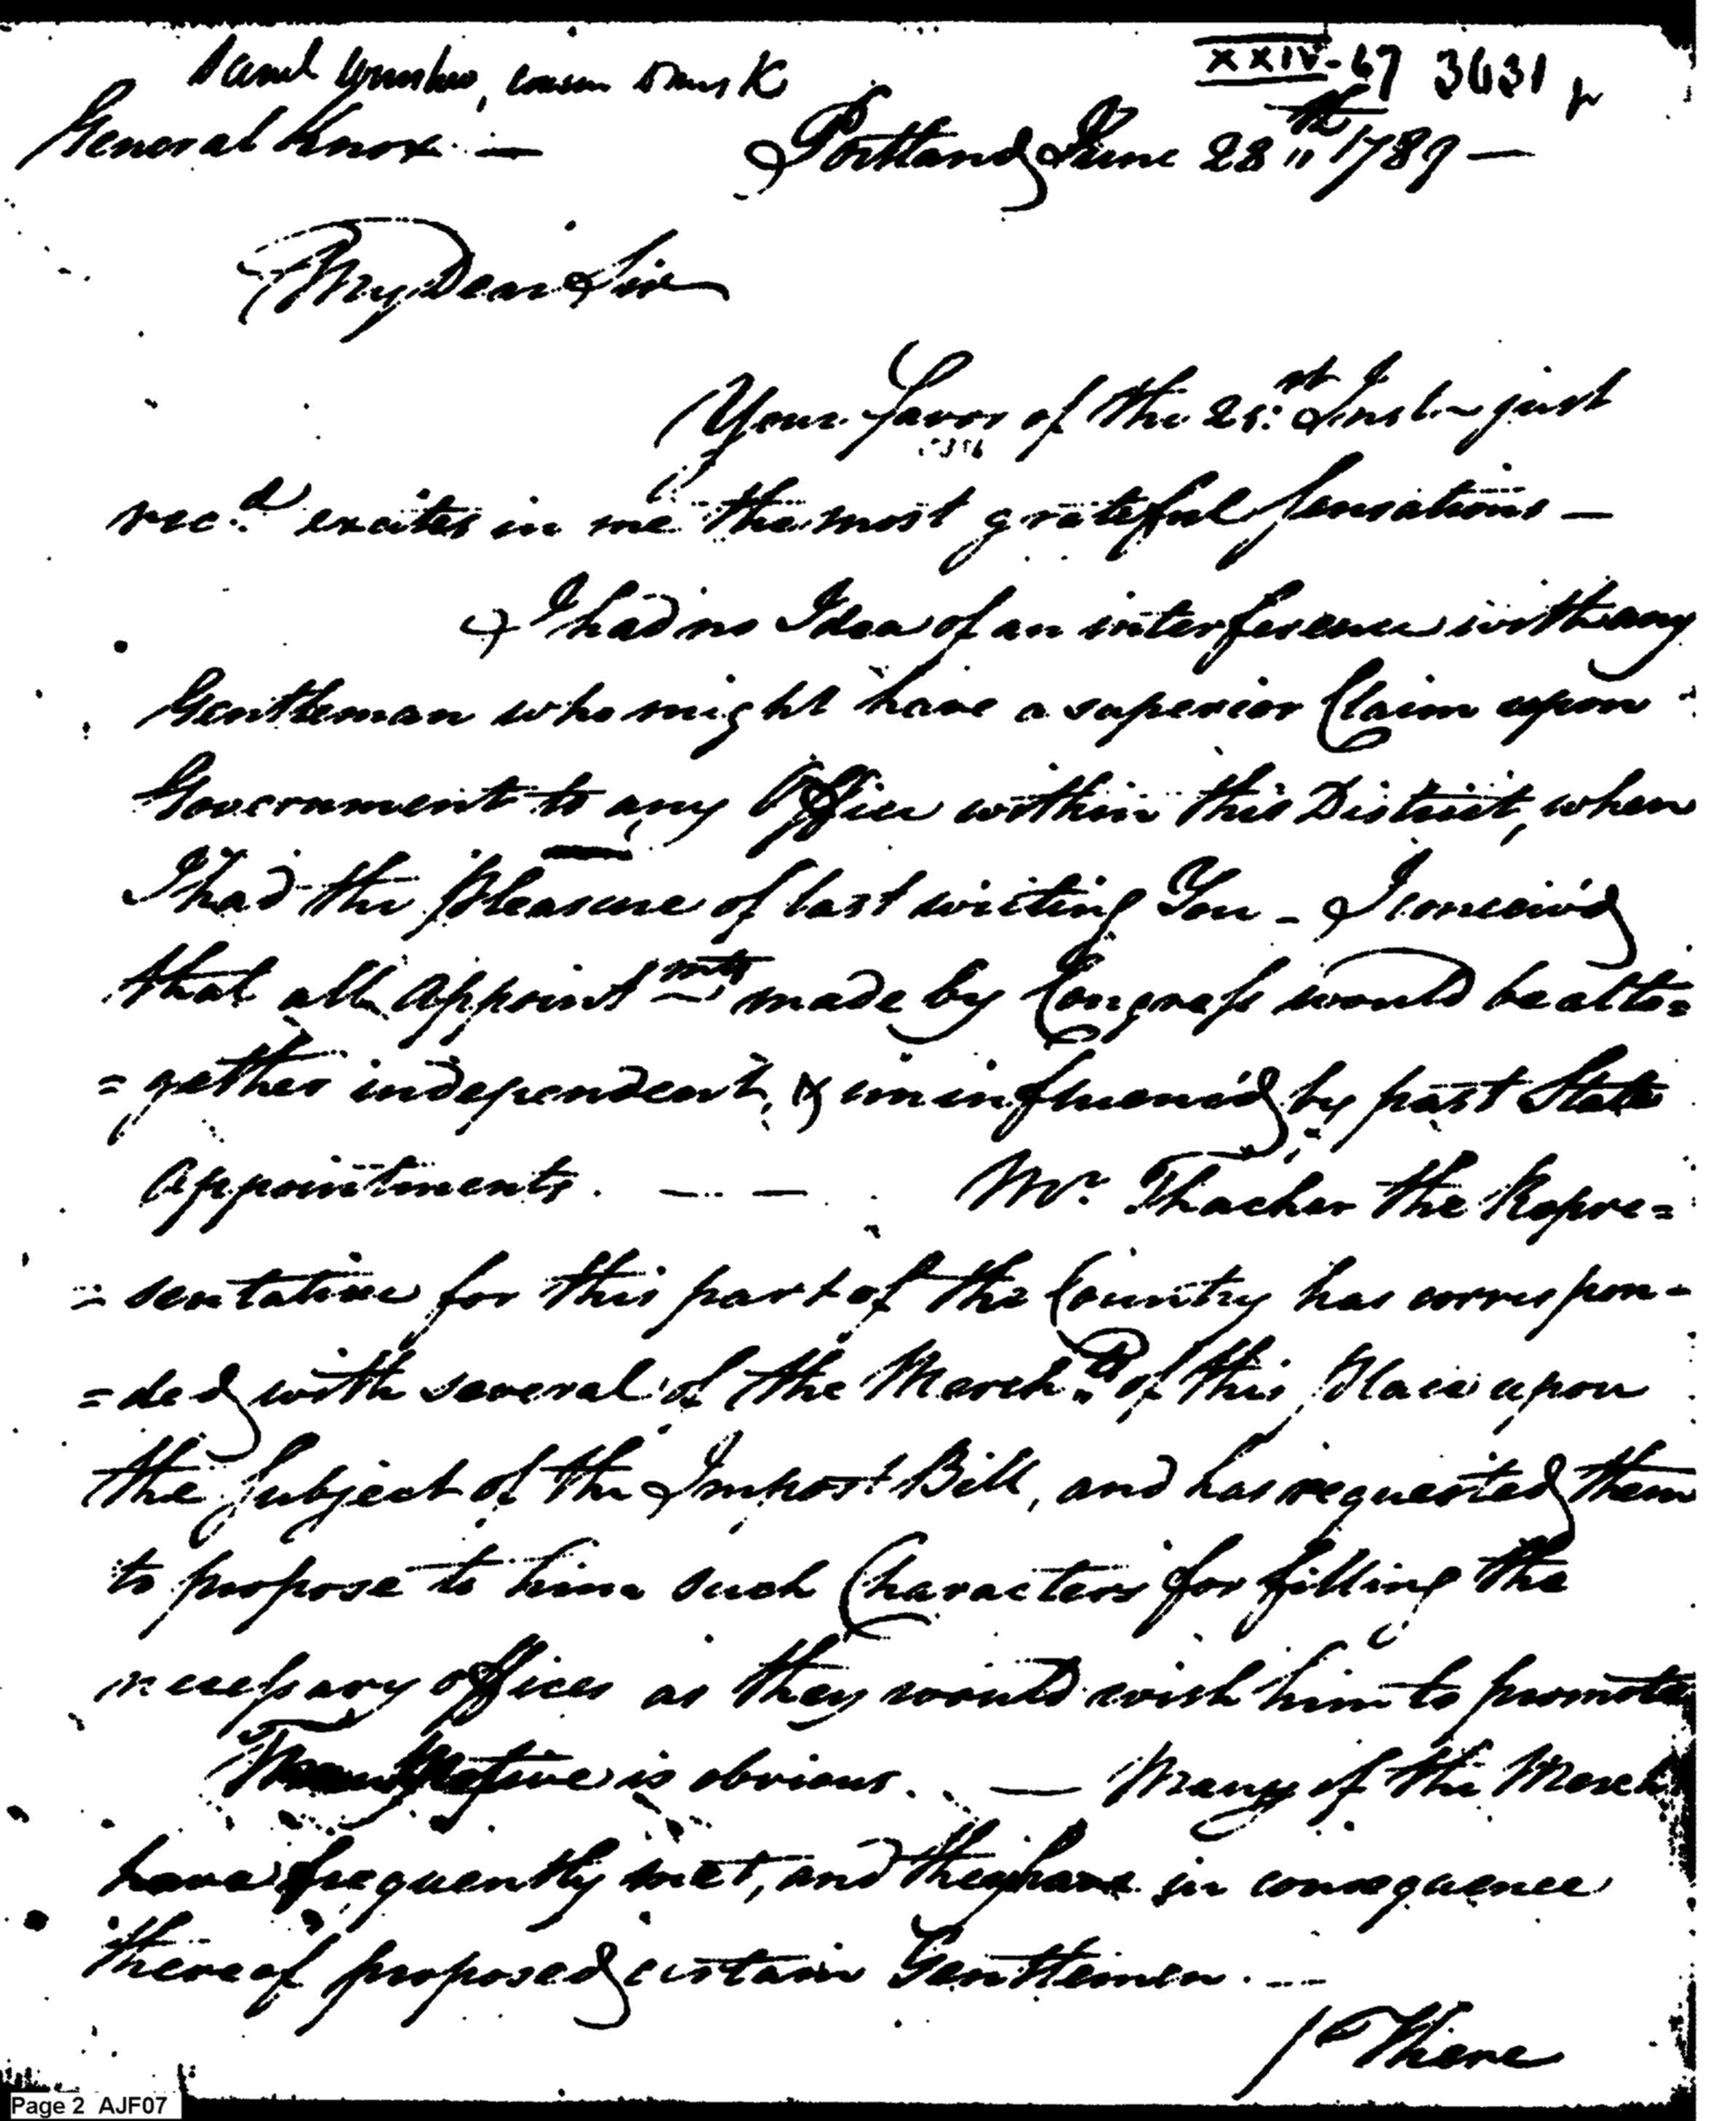 XXIV-67 3631
General Knox — Portland June 28th 1789 —
My Dear Sir
Your favor of the 21st Inst — just
rec.d excites in me the most grateful Sensations —
I had no Idea of an interference with any
Gentleman who might have a superior Claim upon
Government to any Office within this District, when
I had the Pleasure of last writing You — I conceiv'd
that all appointmts made by Congress would be alto=
=gether independent, & uninfluenc'd by past State
appointments. — — Mr. Thacher the Repre=
=sentative for this part of the Country has correspon=
=ded with several of the March.ts of this Place upon
the Subject of the Impost Bill, and has requested them
to propose to him such Characters for filling the
necessary offices as they would wish him to promote
Motive is obvious. — Many of the Merch
have frequently met, and they have in consequence
thereof proposed certain Gentlemen. —
There
Page 2 AJF07